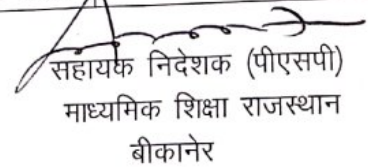 सहायक निदेशक (पीएसपी)
माध्यमिक शिक्षा राजस्थान
बीकानेर